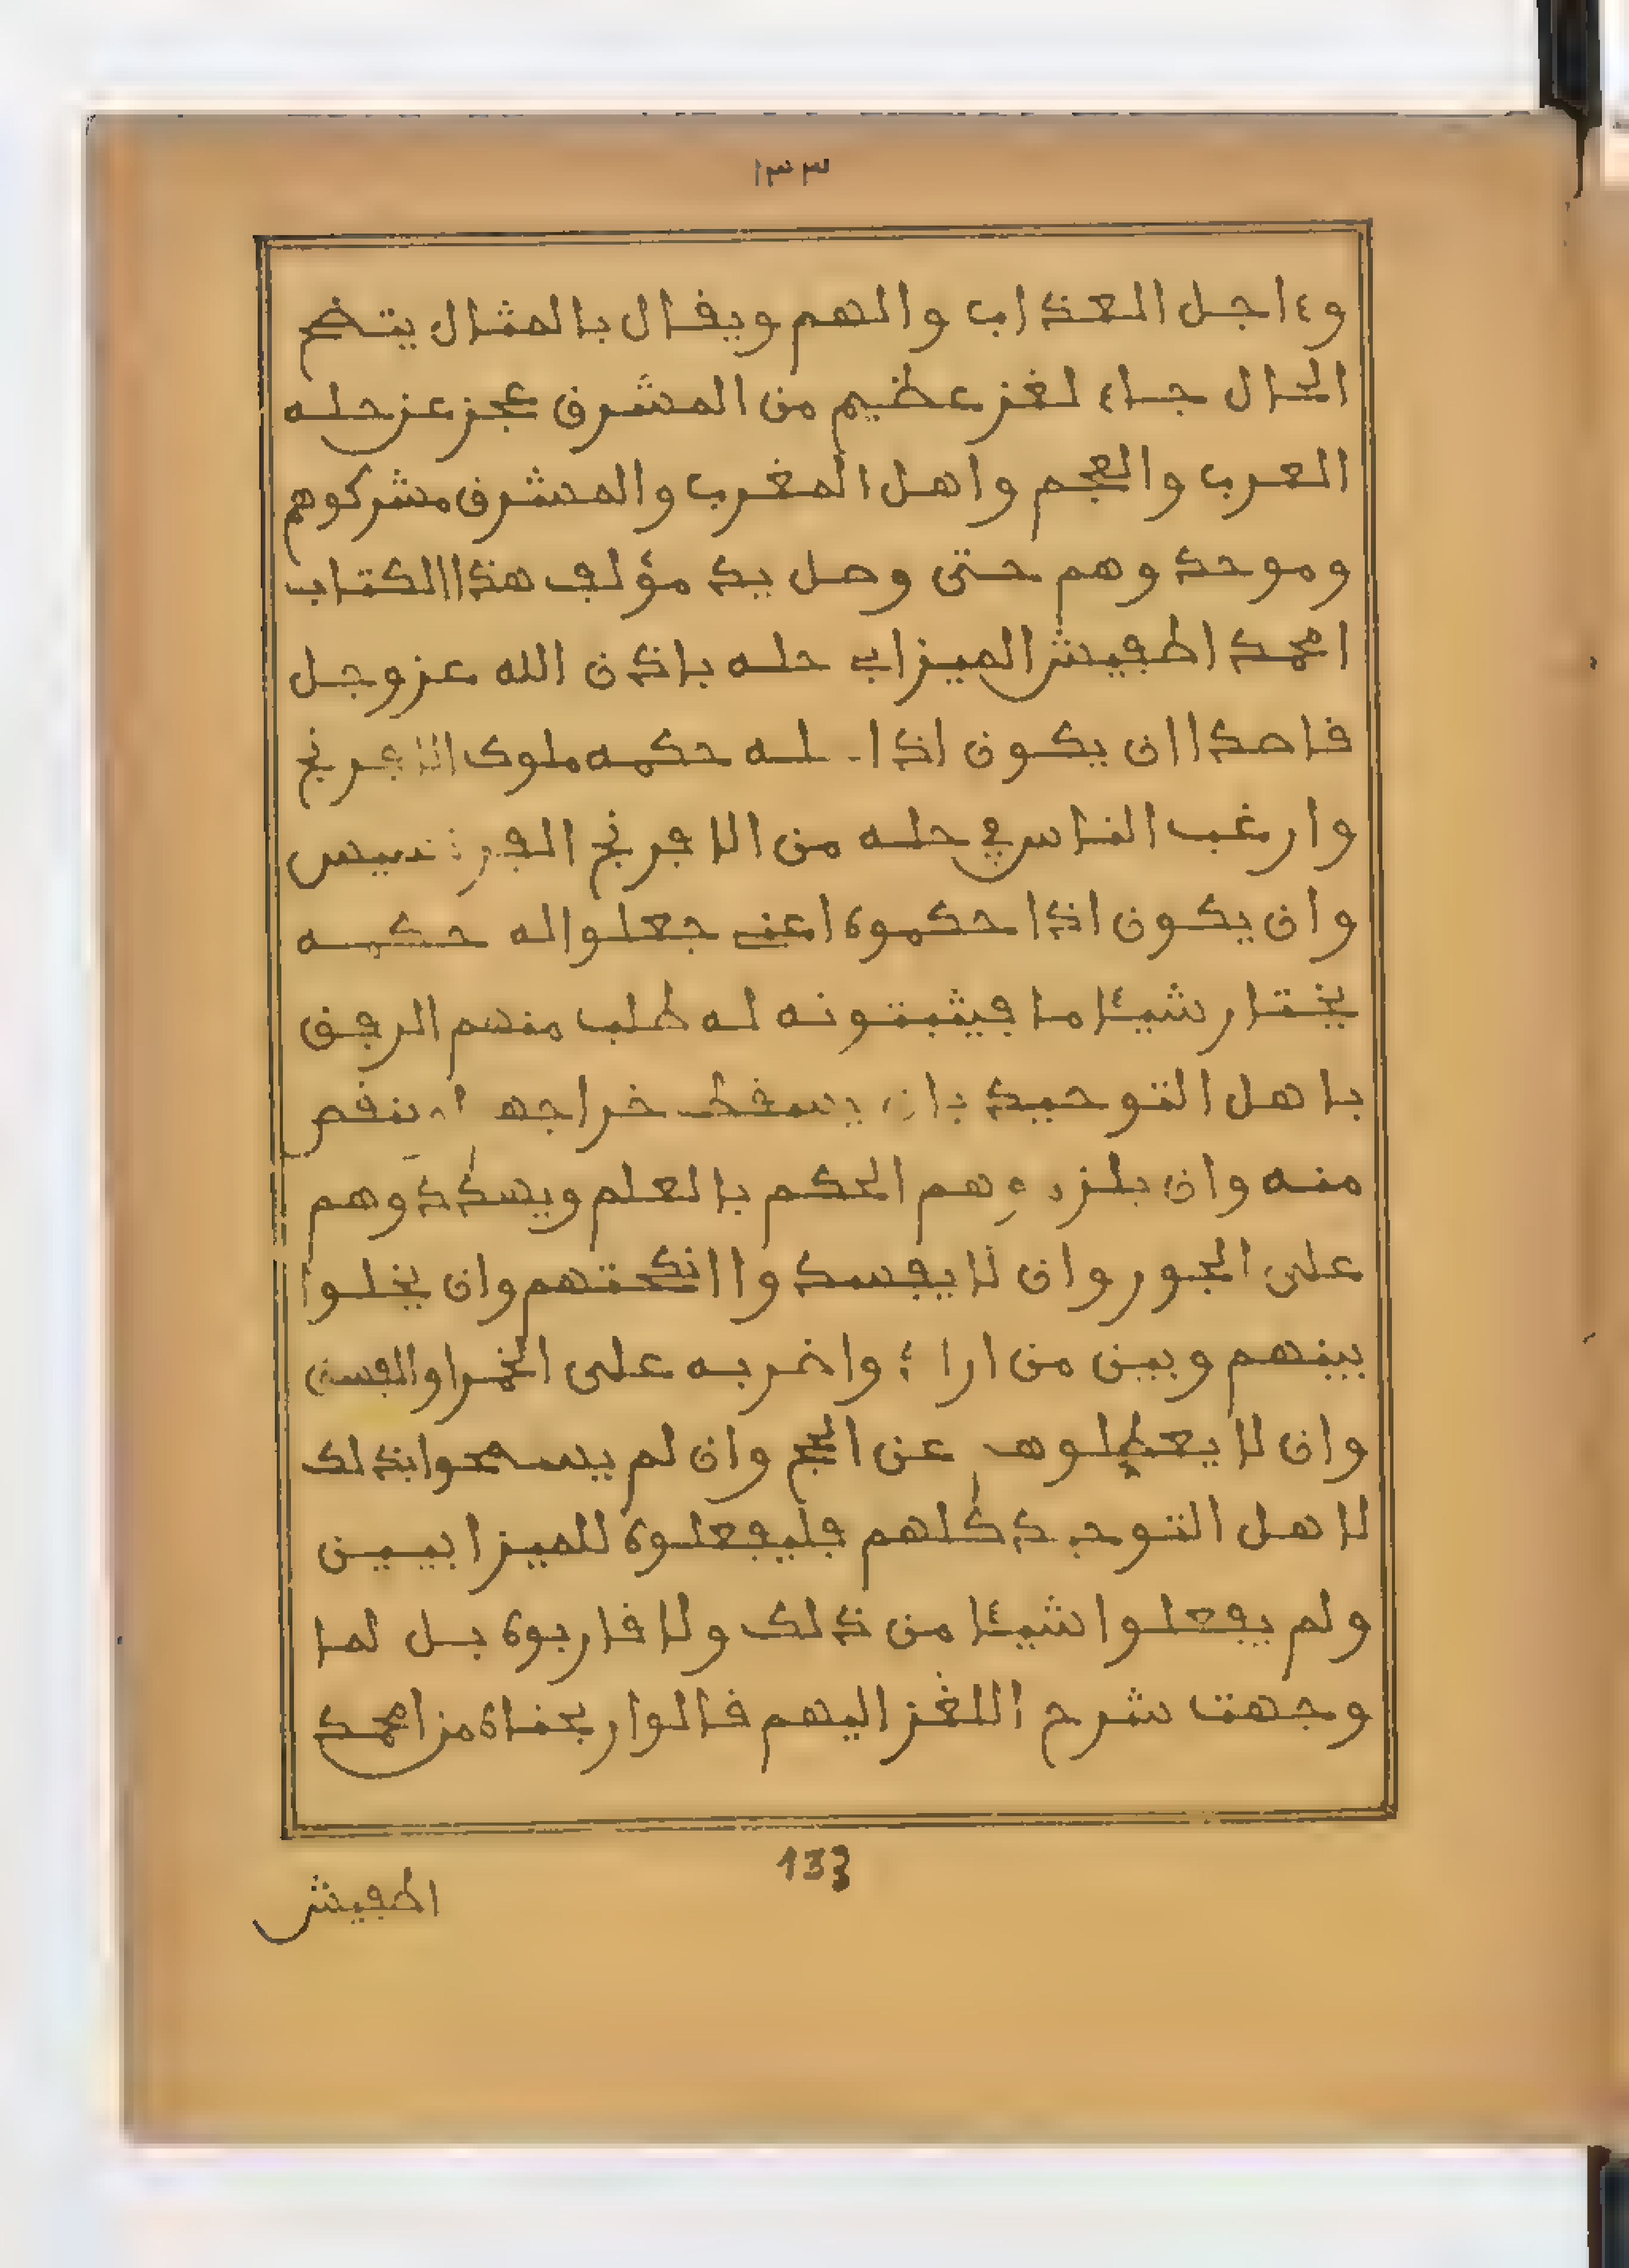 ١٣٣
وءاجل العذاب والهم ويقال بالمثال يتضح
الحال جاء لغز عظيم من المشرق عجز عن حله
العرب والعجم واهل المغرب والمشرق مشركوهم
وموحدوهم حتى وصل يد مؤلف هذا الكتاب
امحمد اطفيش الميزابي حله باذن الله عز وجل
قاصدا ان يكون اذا له حكمه ملوك الافرنج
وارغب الناس في حله من الافرنج الفرنسيس
وان يكون اذا حكموه اعني جعلوا له حكمه
يختار شيئا ما فيثبتونه له طلب منهم الرفق
باهل التوحيد بان يسقط خراجهم ينقص
منه وان الحكم بالعلم ويسددوهم
على الجور وان لا يفسدوا انكحتهم وان يخلوا
بينهم وبين من ارا واضربه على الخمر او الفسق
وان لا يعطلوهم عن الحج وان لم يسمحوا بذلك
لاهل التوحيد كلهم فليفعلوه للميزابيين
ولم يفعلوا شيئا من ذلك ولا قاربوه بل لما
وجهت شرح اللغز اليهم قالوا ربحناه من امحمد
133
اطفيش